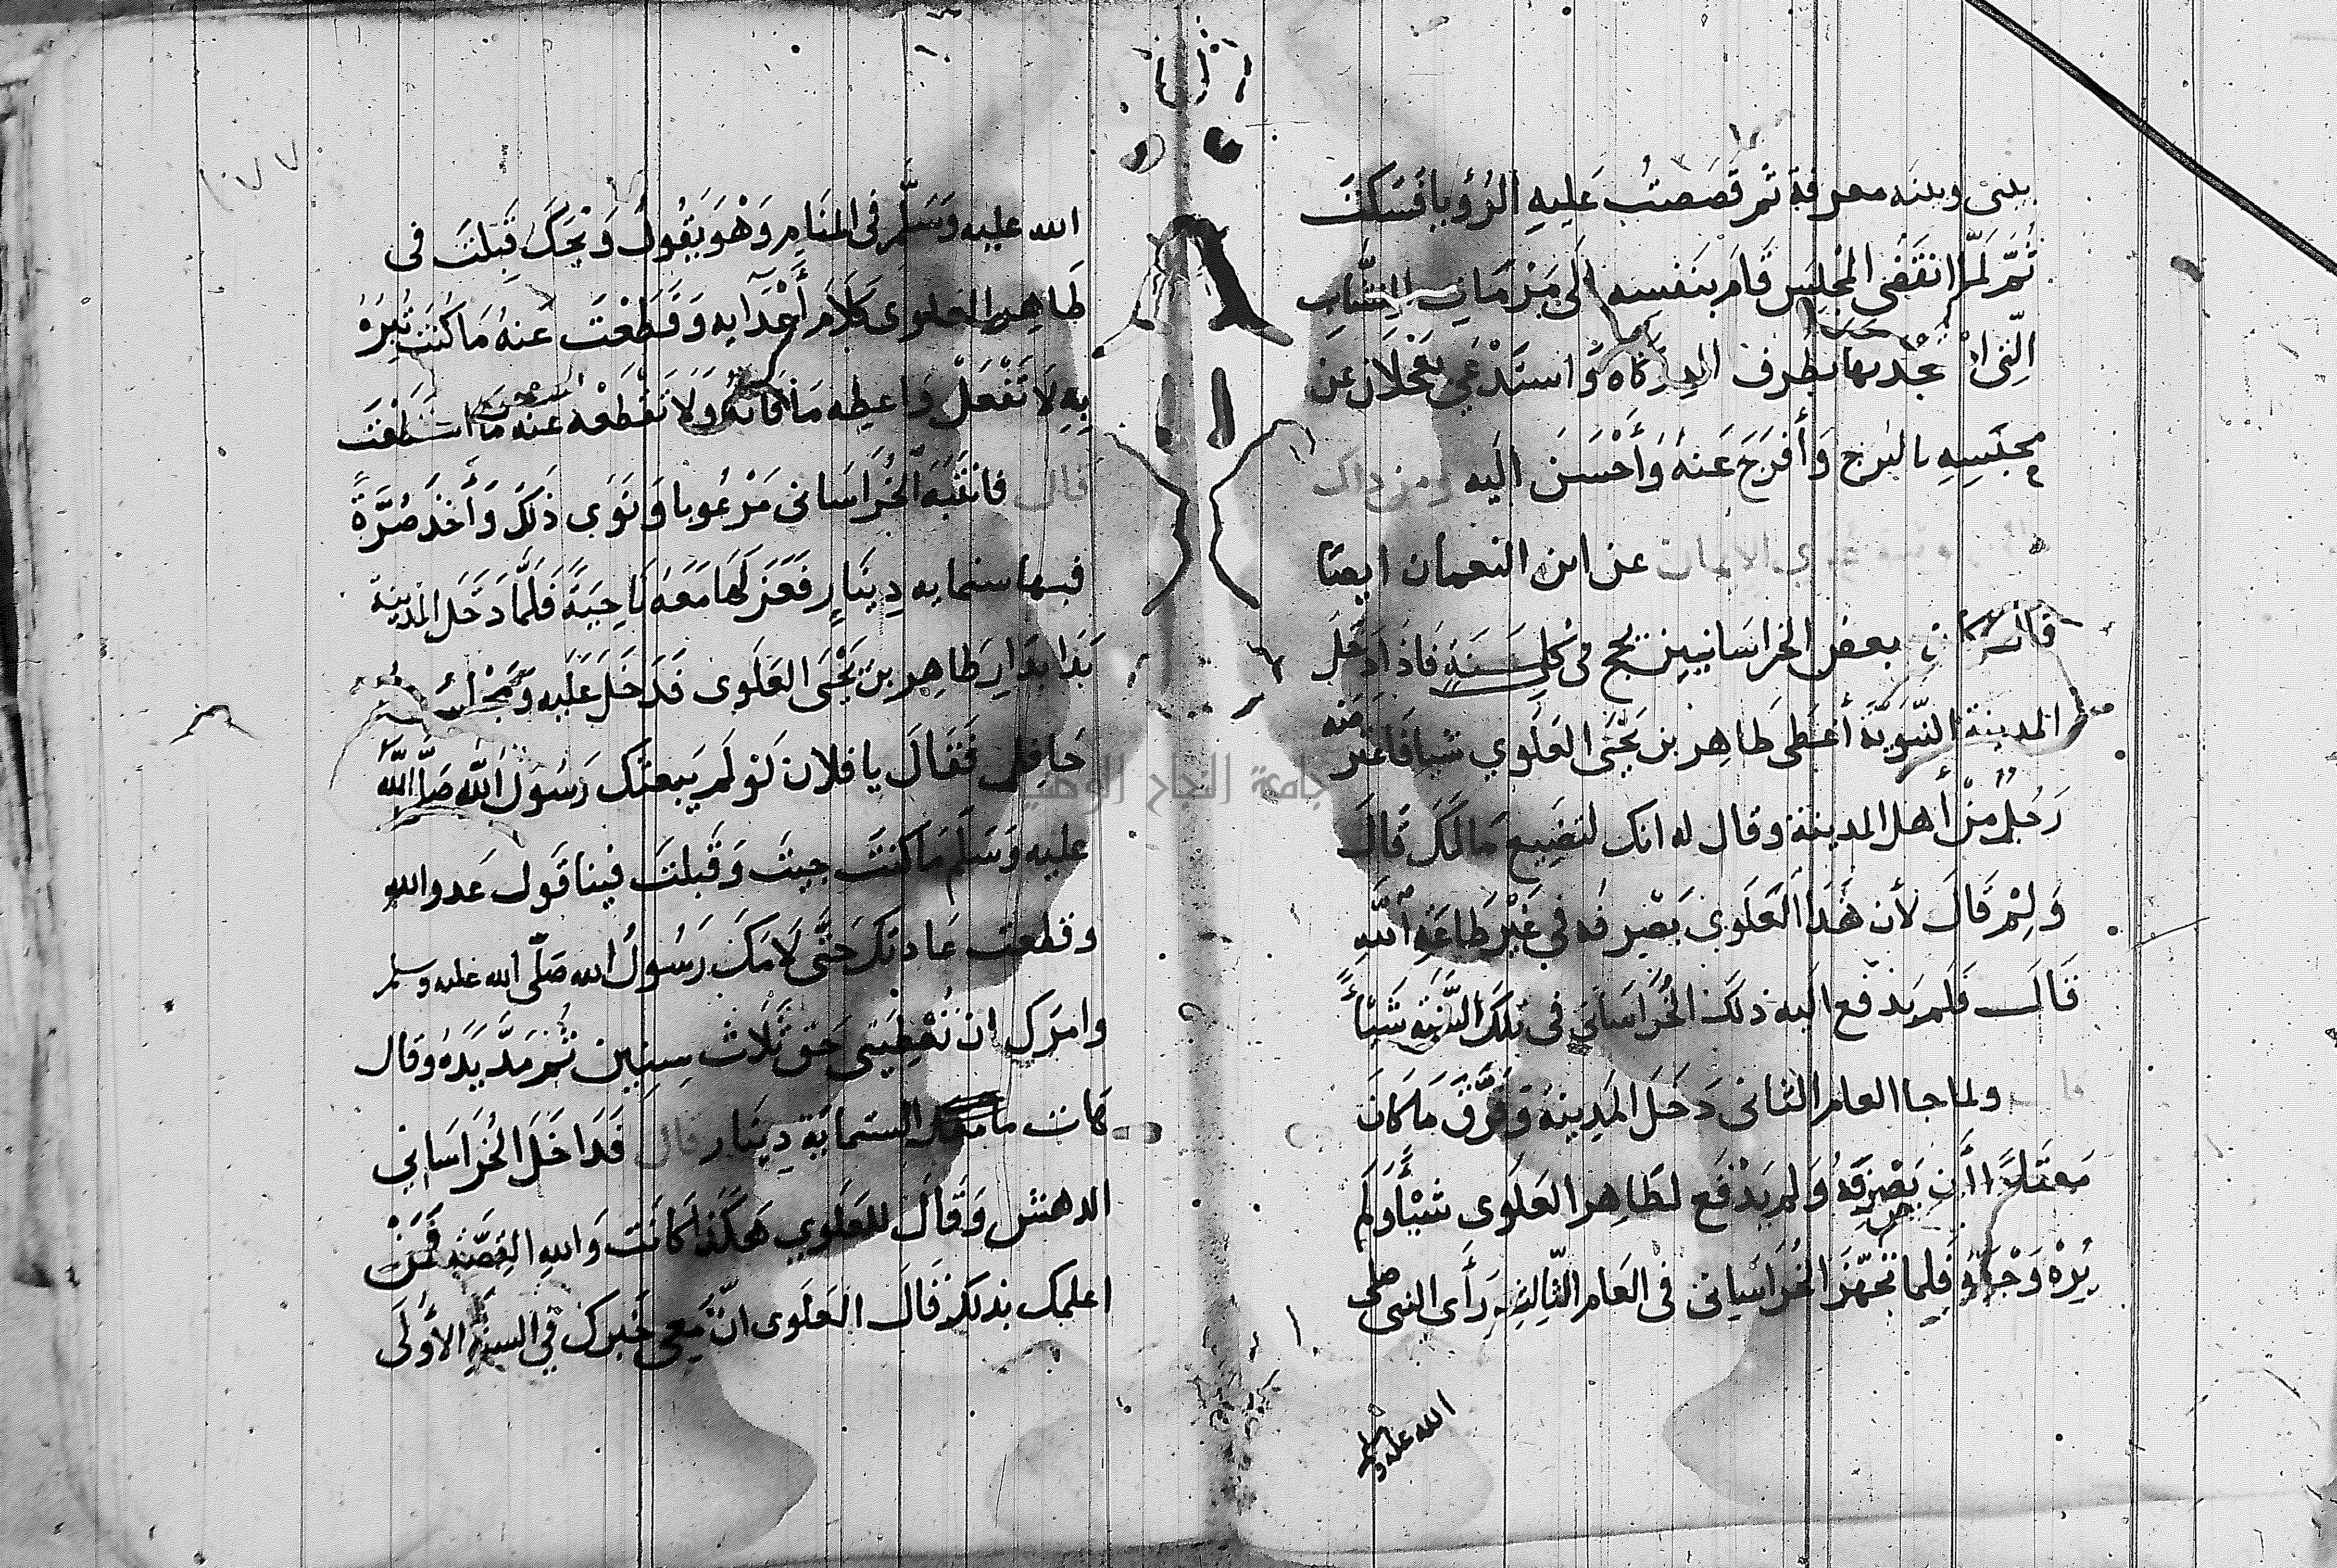 بينى وبينه معرفة ثم قصصت عليه الرؤيا فسكت
ثُمّ لَمّا انقضى المجلس قام بنفسه الى
الّتى بطرف الدركاه واستدعى بعجلان من
محبسه بالبرج وأفرج عنه وأحسن اليه ومن ذاك
عن ابن النعمان ايضًا
قال كان بعض الخراسانيين يحج فى كل سنة فاذا دخل
المدينة النبوية أعطى طاهر بن يحيى العلوي شيا فاعترضه
رجل من أهل المدينة وقال له انك لتضيع مالك قال
ولِمْ قال لأن هذا العلوى يصرفه في غير طاعة الله
قال فلم يدفع اليه ذلك الخراسانى فى تلك السنة شيأً
قال ولما جا العام الثانى دخل المدينة وفرق ما كان
أن يصرفه ولم يدفع لطاهر العلوى شيأ ولم
يره وجهه فلما تجهّز الخراسانى فى العام الثالث رأى النبى صلى
الله عليه وسلم
١٧٧
الله عليه وسلّم فى المنام وهو يقول ويحك قبلت فى
طاهر العلوى كلام أعدايه وقطعت عنه ما كنت تبره
به لا تفعل واعطه ما فاته ولا تقطعه عنه ما استطعت
قال فانتبه الخراسانى مرعوبا ونوى ذلك وأخذ صُرّةً
فيها ستمايه دينار فعزلها معه ناحيةً فلمّا دخل المدينة
بدا بدار طاهر بن يحيى العلوى فدخل عليه ومجلسه
حافل فقال يا فلان لو لم يبعثك رسول الله صلّى الله
عليه وسلم ما كنت جيت وقبلت فينا قول عدو الله
وقطعت عادتك حتّى لامك رسولُ الله صلّى الله عليه وسلم
وامرك ان تعطينى حق ثلاث سنين ثُم مدّ يده وقال
هات ما معك الستماية دينار قال فداخل الخراساني
الدهش وقال للعلوي هكذا كانت والله القصّة فمن
اعلمك بذلك قال العلوى انّ معى خبرك في السنة الأولى
جامعة النجاح الوطنية